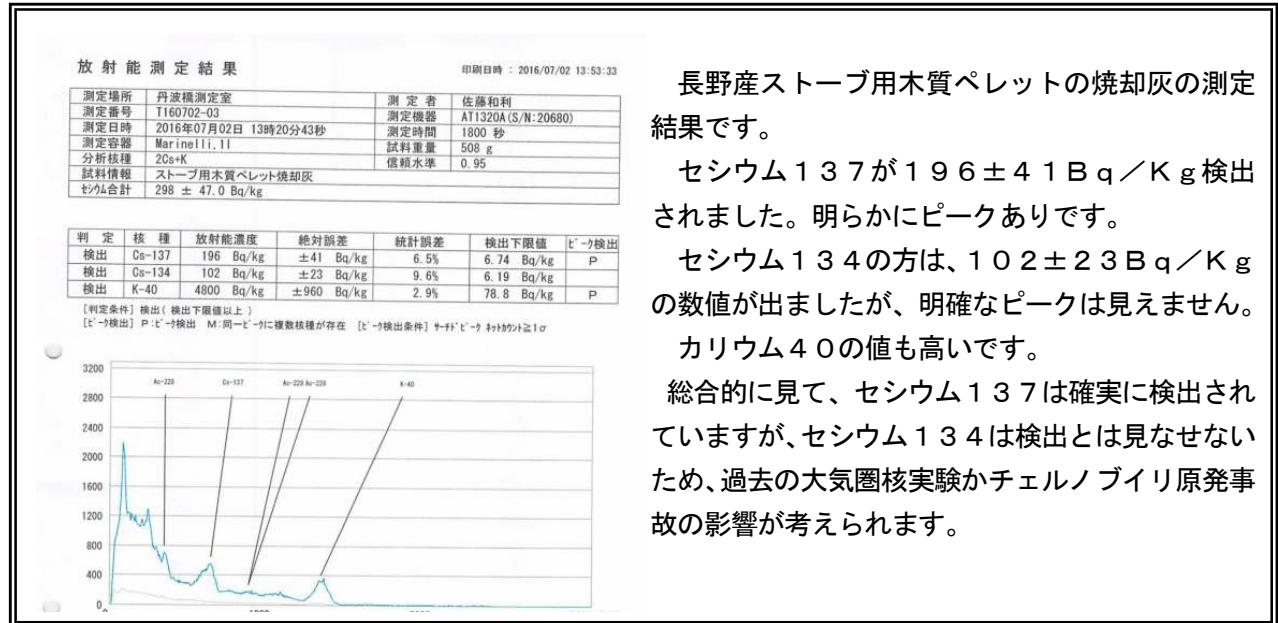 放射能測定結果
印刷日時 : 2016/07/02 13:53:33
測定場所 丹波橋測定室 測定者 佐藤和利
測定番号 T160702-03 測定機器 AT1320A(S/N:20680)
測定日時 2016年07月02日 13時20分43秒 測定時間 1800 秒
測定容器 Marinelli,1l 試料重量 508 g
分析核種 2Cs+K 信頼水準 0.95
試料情報 ストーブ用木質ペレット焼却灰
セシウム合計 298 ± 47.0 Bq/kg
判定 核種 放射能濃度 絶対誤差 統計誤差 検出下限値 ピーク検出
検出 Cs-137 196 Bq/kg ±41 Bq/kg 6.5% 6.74 Bq/kg P
検出 Cs-134 102 Bq/kg ±23 Bq/kg 9.6% 6.19 Bq/kg
検出 K-40 4800 Bq/kg ±960 Bq/kg 2.9% 78.8 Bq/kg P
[判定条件] 検出( 検出下限値以上 )
[ピーク検出] P:ピーク検出 M:同一ピークに複数核種が存在 [ピーク検出条件] サーチドピーク ネットカウント≧1σ
3200
Ac-228 Cs-137 Ac-228 Ac-228 K-40
2800
2400
2000
1600
1200
800
400
0
長野産ストーブ用木質ペレットの焼却灰の測定
結果です。
セシウム137が196±41Bq/Kg検出
されました。明らかにピークありです。
セシウム134の方は、102±23Bq/Kg
の数値が出ましたが、明確なピークは見えません。
カリウム40の値も高いです。
総合的に見て、セシウム137は確実に検出され
ていますが、セシウム134は検出とは見なせない
ため、過去の大気圏核実験かチェルノブイリ原発事
故の影響が考えられます。